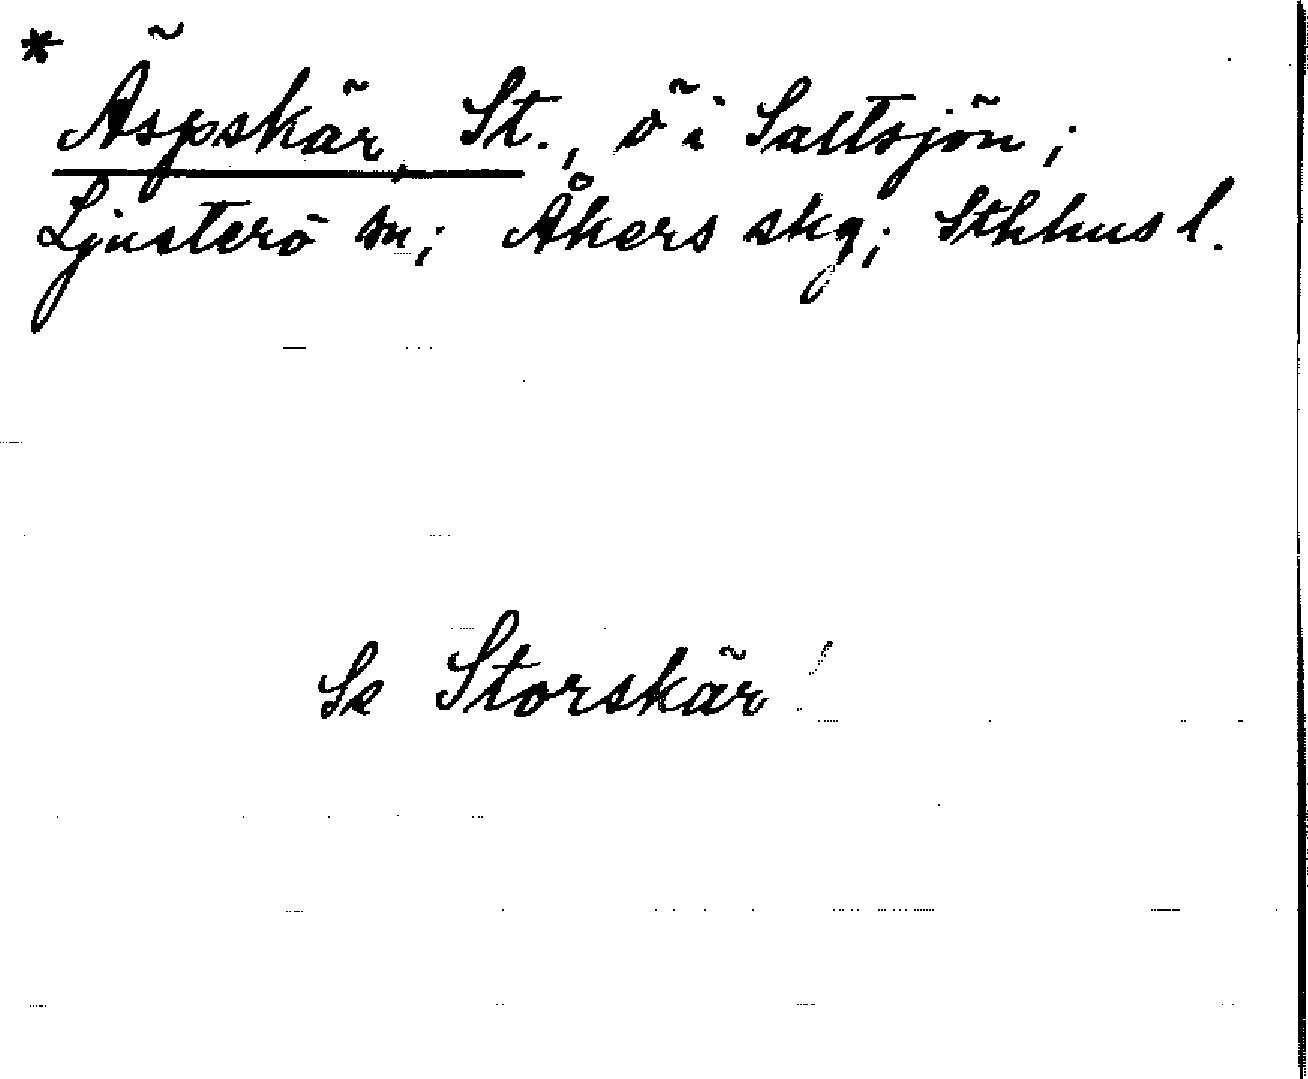 * Äspskär, St., ö i Saltsjön;
Ljusterö sn; Åkers skg; Sthhus l.
Se Storskär!